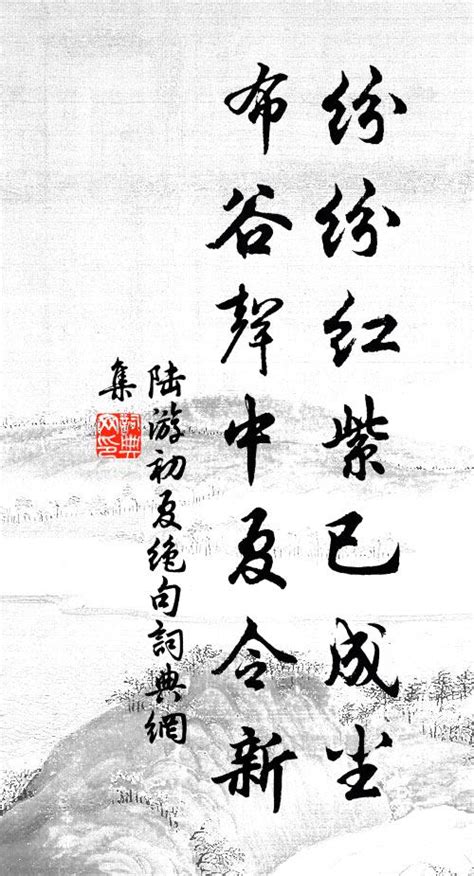 纷纷红紫已成尘
布谷聲中夏令新
陆游初夏绝句詞典網
集
詞典网印